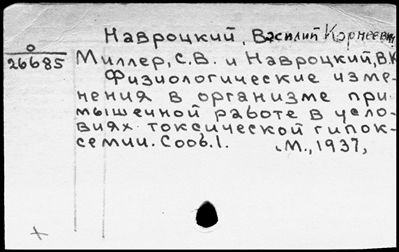 Навроцкий, Василий Корнеевич
о
26685
Миллер, С.В. и Навроцкий, В.К.
Физиологические изме-
нения в организме при
мышечной работе в усло-
виях токсической гипок-
семии. Сооб. 1. М., 1937,